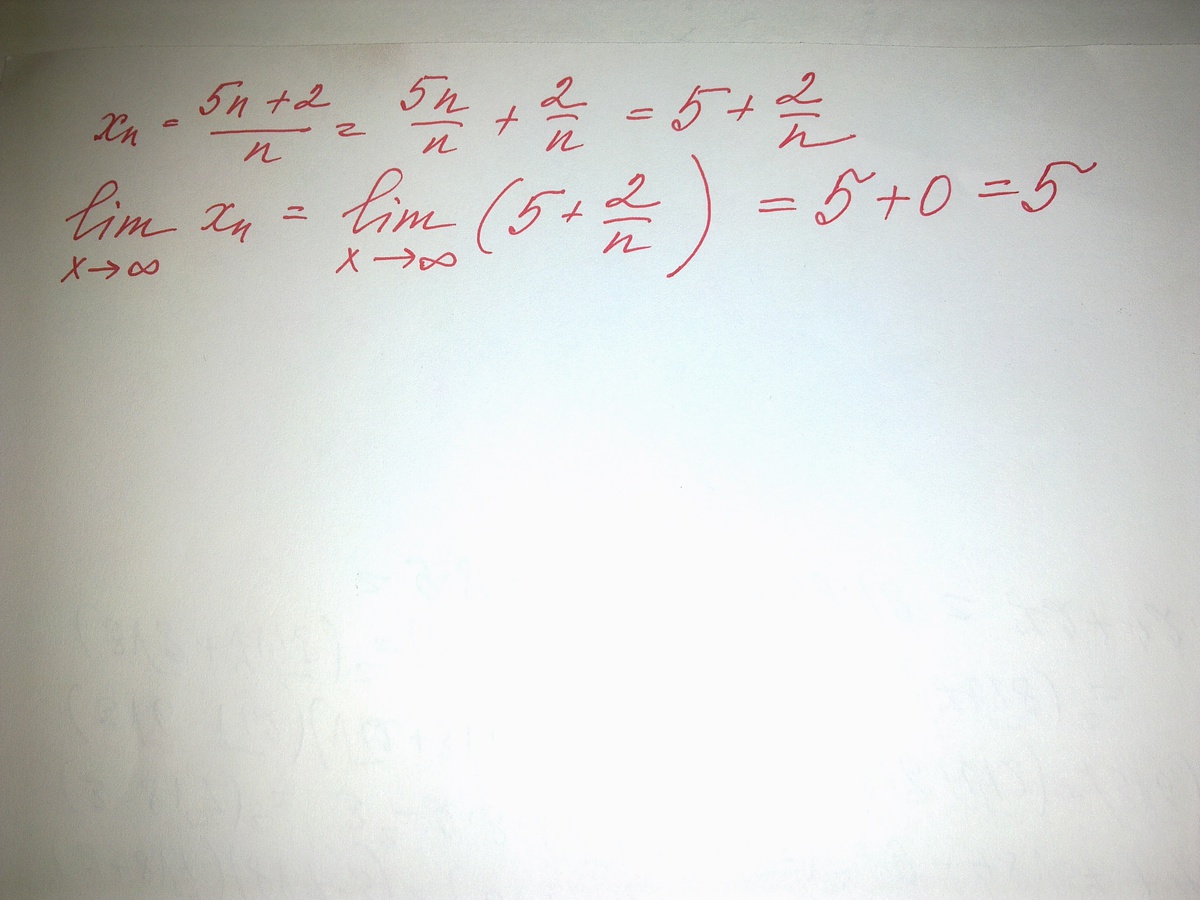 xₙ = (5n + 2)/n = 5n/n + 2/n = 5 + 2/n
lim x→∞ xₙ = lim x→∞ (5 + 2/n) = 5 + 0 = 5